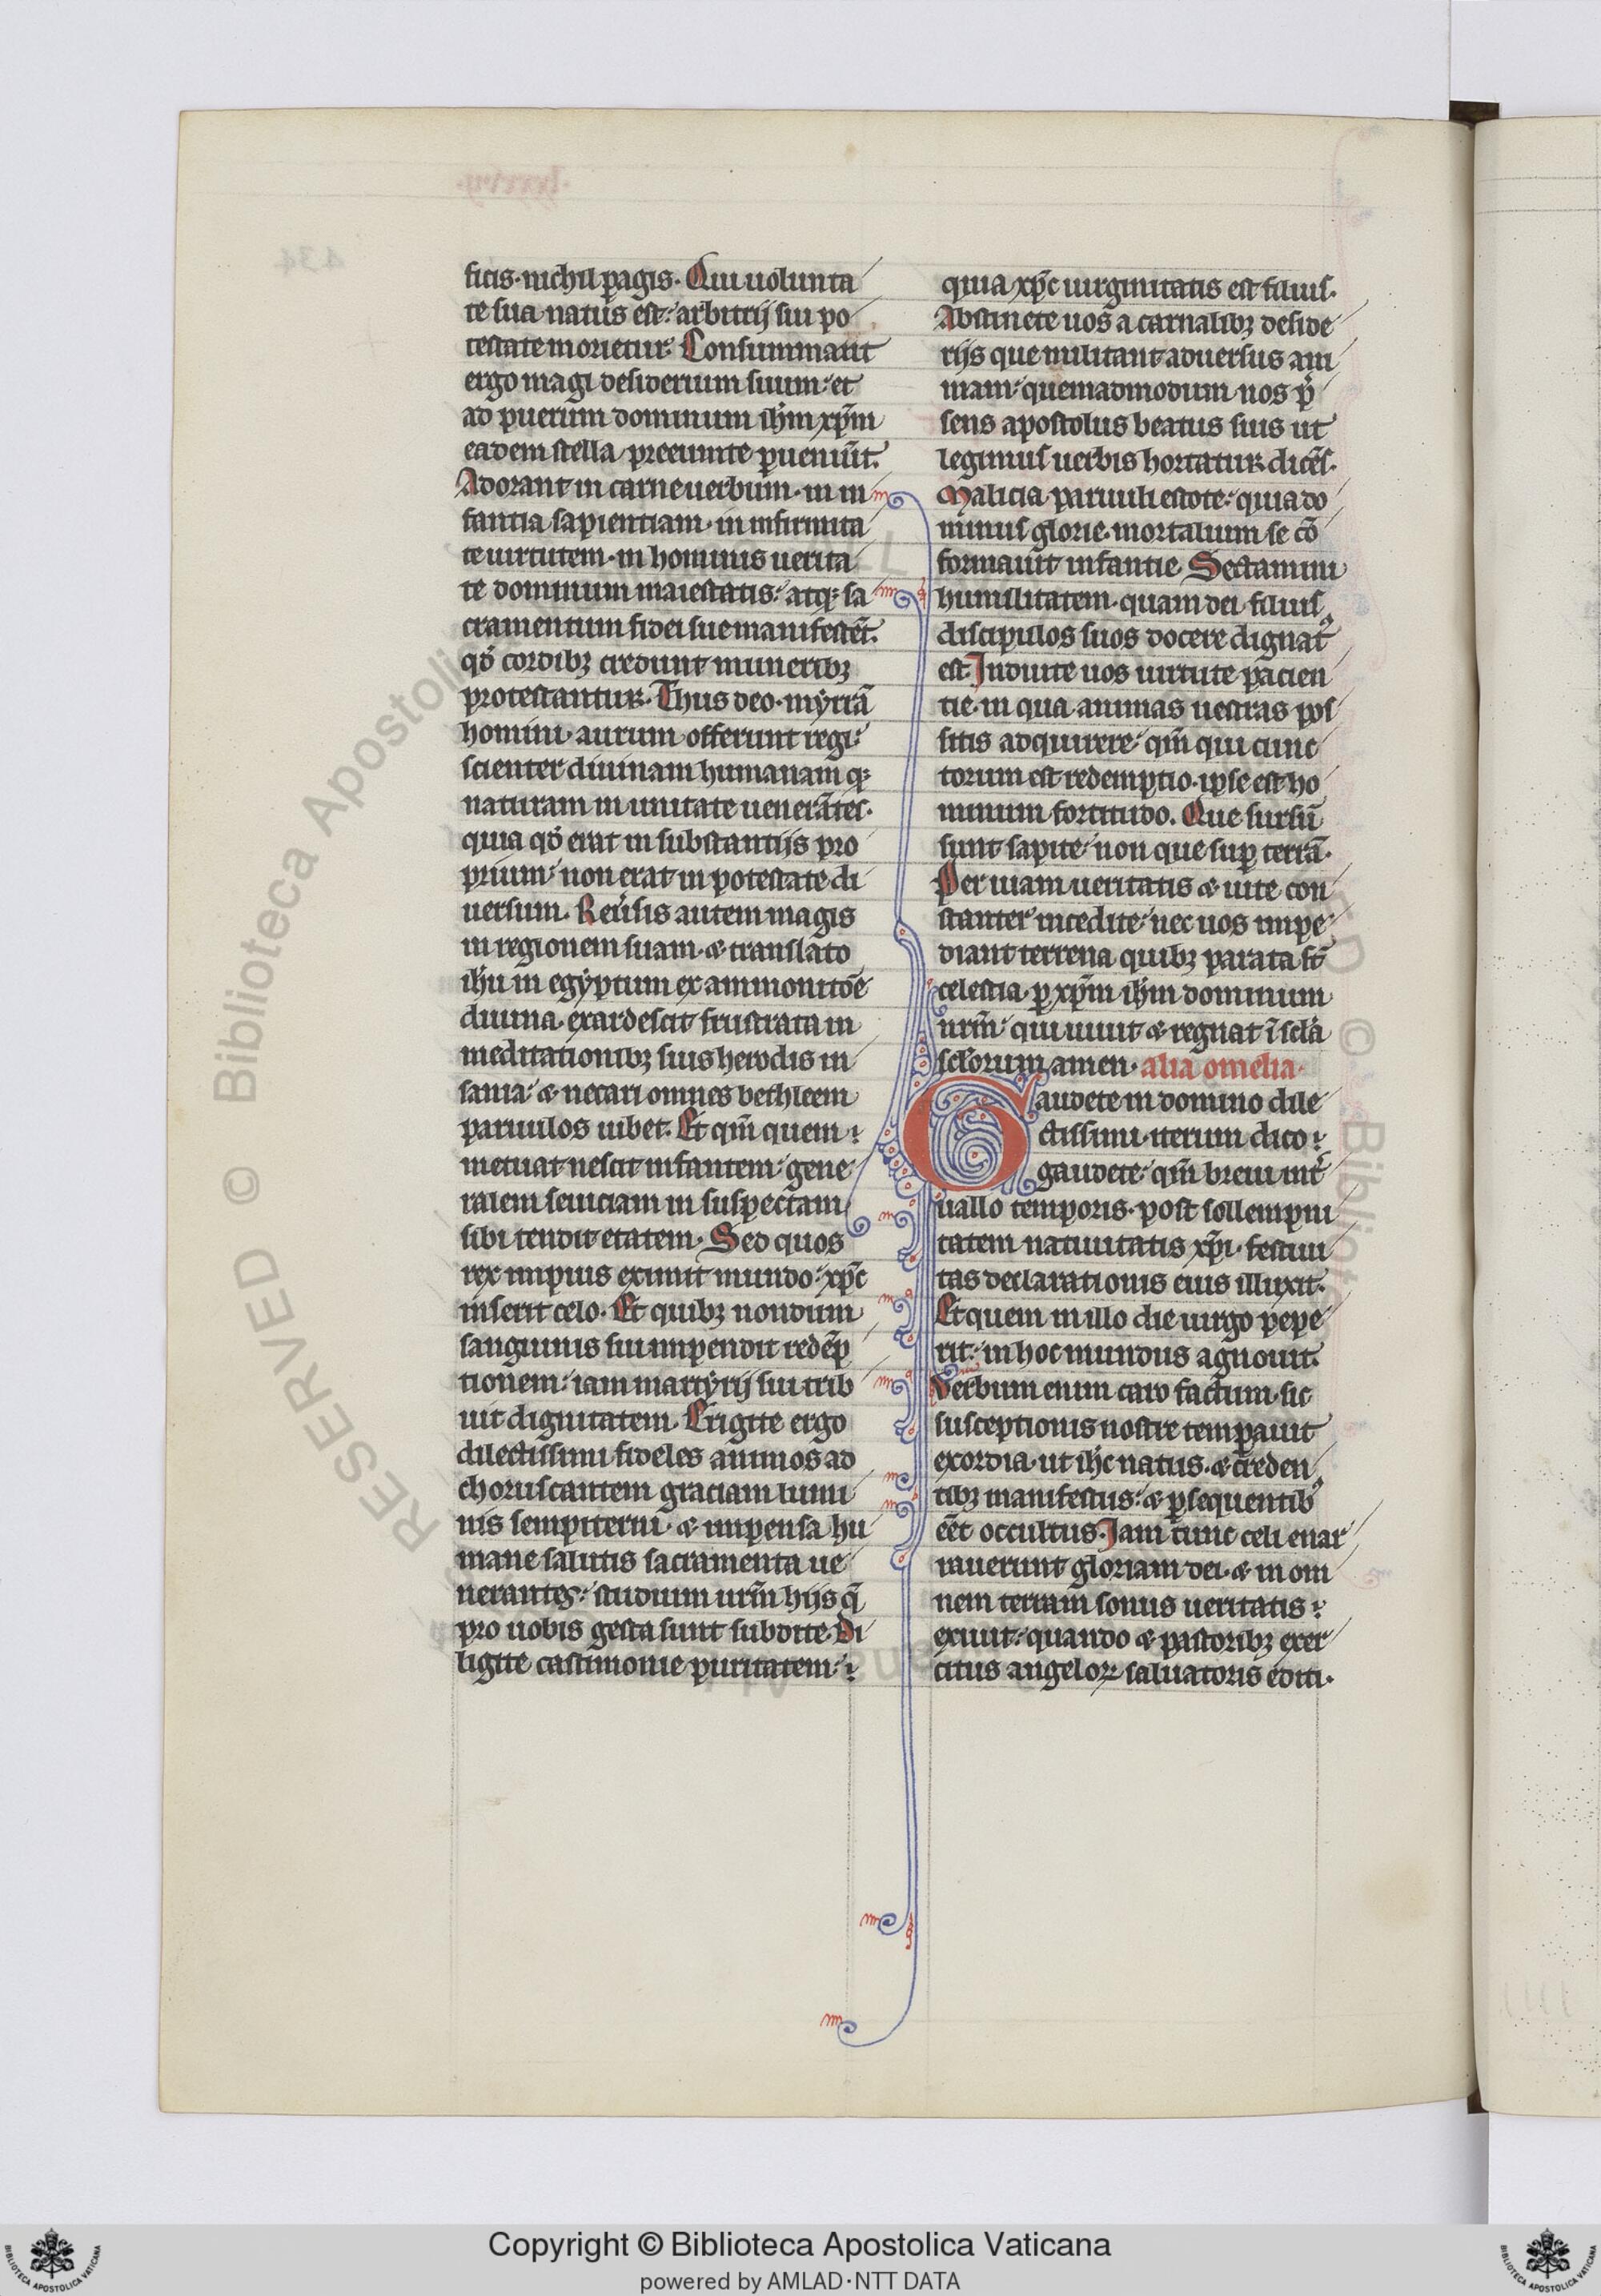 ficis·nichil pagis. Qui uolunta
te sua natus est: arbitrij sui po
testate morietur. Consummant
ergo magi desiderium suum: et
ad puerum dominum ihm̄ xp̄m
eadem stella preeunte ꝑueniūt.
Adorant in carne uerbum· in in
fantia sapientiam· in infirmita
te uirtutem· in hominis uerita
te dominum maiestatis: atq; sa
cramentum fidei sue manifestēt.
qd̓ cordibꝫ credunt muneribꝫ
protestantur. Thus deo· myrrā
homini· aurum offerunt regi:
scienter diuinam humanam q;
naturam in unitate uenerātes·
quia qd̓ erat in substantijs pro
prium: non erat in potestate di
uersum. Reuͥsis autem magis
in regionem suam· & translato
ihu in egyptum ex ammonitōe
diuina· exardescit frustrata in
meditationibꝫ suis herodis in
sania: & necari omnes bethleem
paruulos iubet. Et qm̄ quem
metuat nescit infantem: gene
ralem seuiciam in suspectam
sibi tendit etatem. Sed quos
rex impius eximit mundo: xp̄c
inserit celo. Et quibꝫ nondum
sanguinis sui impendit redēp
tionem: iam martyrij sui trib
uit dignitatem. Erigite ergo
dilectissimi fideles animos ad
choruscantem graciam lumi
nis sempiterni· & impensa hu
mane salutis sacramenta ue
nerantes: studium urm̄ hijs q̄
pro uobis gesta sunt subdite. Di
ligite castimonie puritatem:
quia xp̄c uirginitatis est filius.
Abstinete uos a carnalibꝫ deside
rijs que militant aduersus ani
mam: quemadmodum nos p̄
sens apostolus beatus suis ut
legimus uerbis hortatur dicēs.
Malicia paruuli estote: quia do
minus glorie· mortalium se cō
formauit infantie. Sectamini
humilitatem· quam dei filius
discipulos suos docere dignatꝰ
est. Induite uos uirtute pacien
tie· in qua animas uestras pos
sitis adquirere: qm̄ qui cunc
torum est redemptio· ipse est ho
minum fortitudo. Que sursū
sunt sapite: non que suꝑ terrā·
Per uiam ueritatis & uite con
stanter incedite: nec uos impe
diant terrena quibꝫ parata st̄
celestia· ꝑ xp̄m ihm̄ dominum
nrm̄: qui uiuit & regnat ī scl̄a
scl̄orum amen· alia omelia·
Gaudete in domino dile
ctissimi· iterum dico
gaudete: qm̄ breui int̓
uallo temporis· post sollempni
tatem natiuitatis xp̄i· festiui
tas declarationis eius illuxit.
Et quem in illo die uirgo pepe
rit: in hoc mundus agnouit.
Verbum enim caro factum· sic
susceptionis nostre temꝑauit
exordia· ut ihc̄ natus· & creden
tibꝫ manifestus: & ꝑsequentibꝰ
eēt occultus. Jam tunc celi enar
rauerunt gloriam dei· & in om
nem terram sonus ueritatis
exiuit: quando & pastoribꝫ exer
citus angeloꝝ saluatoris editi·
Copyright © Biblioteca Apostolica Vaticana
powered by AMLAD·NTT DATA